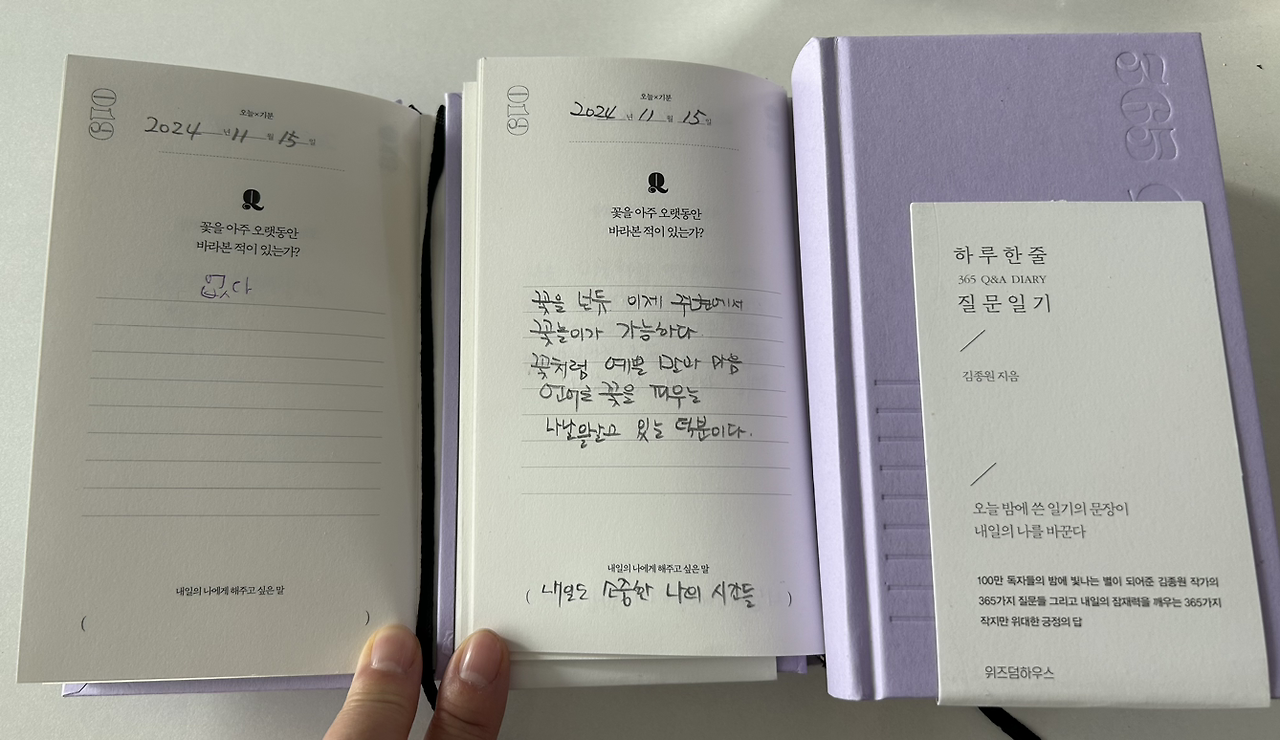 018
오늘×기분
2024년 11월 15일
Q
꽃을 아주 오랫동안
바라본 적이 있는가?
없다
내일의 나에게 해주고 싶은 말
( )
019
오늘×기분
2024년 11월 15일
Q
꽃을 아주 오랫동안
바라본 적이 있는가?
꽃을 넌듯 이제
꽃놀이가 가능하다
꽃처럼 예쁜 말과 마음
언어로 꽃을 피우는
있는 덕분이다.
내일의 나에게 해주고 싶은 말
( 내일도 소중한 나의 시간들 )
365
하루 한 줄
365 Q&A DIARY
질문 일기
김종원 지음
오늘 밤에 쓴 일기의 문장이
내일의 나를 바꾼다
100만 독자들의 밤에 빛나는 별이 되어준 김종원 작가의
365가지 질문들 그리고 내일의 잠재력을 깨우는 365가지
작지만 위대한 긍정의 답
위즈덤하우스